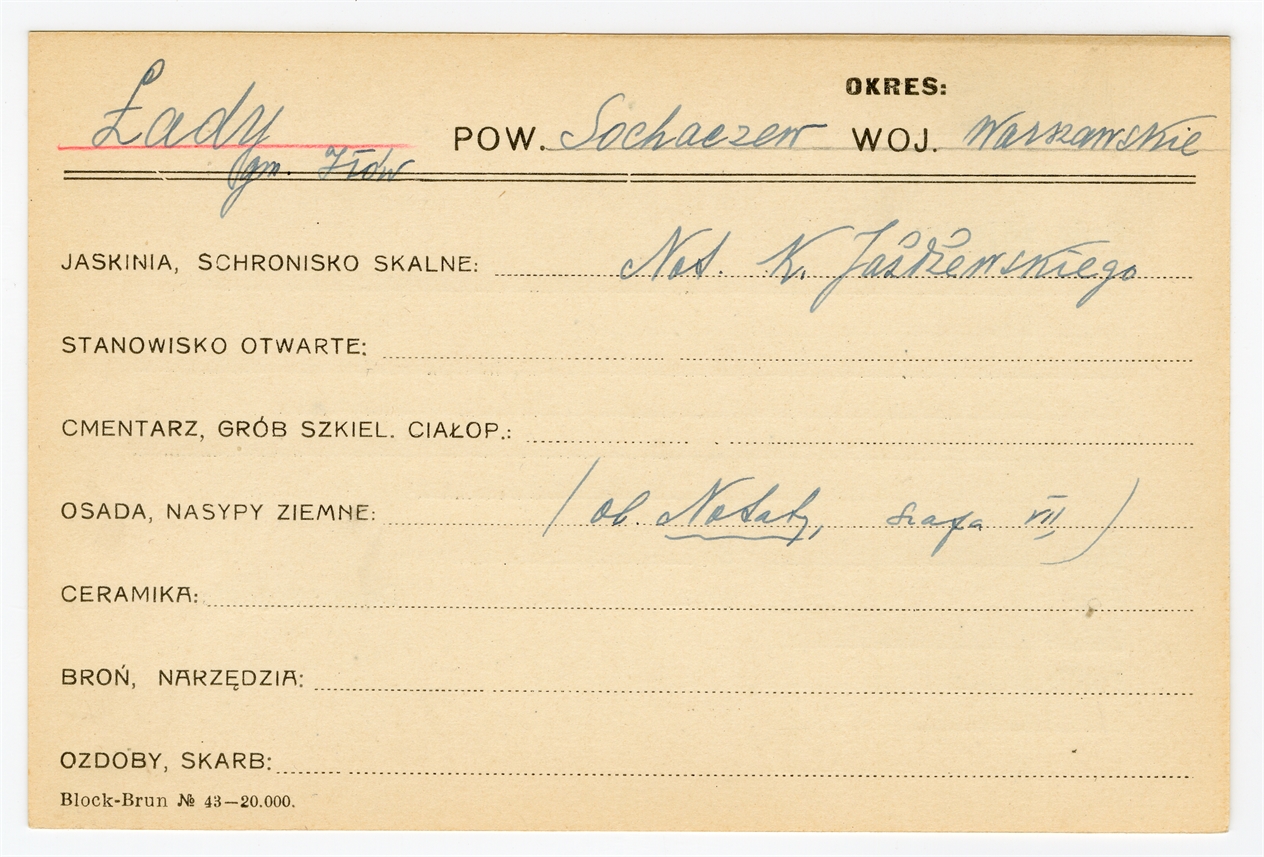 OKRES:
Łady POW. Sochaczew WOJ. Warszawskie
gm. Iłów
JASKINIA, SCHRONISKO SKALNE: Not. K. Jażdżewskiego
STANOWISKO OTWARTE:
CMENTARZ, GRÓB SZKIEL. CIAŁOP.:
OSADA, NASYPY ZIEMNE: (ob. Notaty, szafa VII)
CERAMIKA:
BROŃ, NARZĘDZIA:
OZDOBY, SKARB:
Block-Brun № 43—20.000.